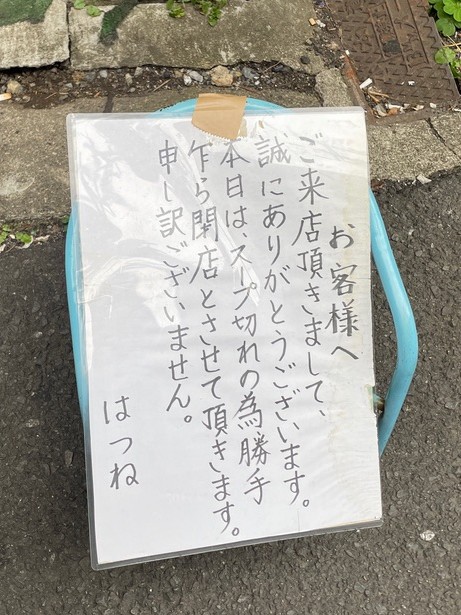 お客様へ
ご来店頂きまして、
誠にありがとうございます。
本日は、スープ切れの為、勝手
乍ら閉店とさせて頂きます。
申し訳ございません。
はつね